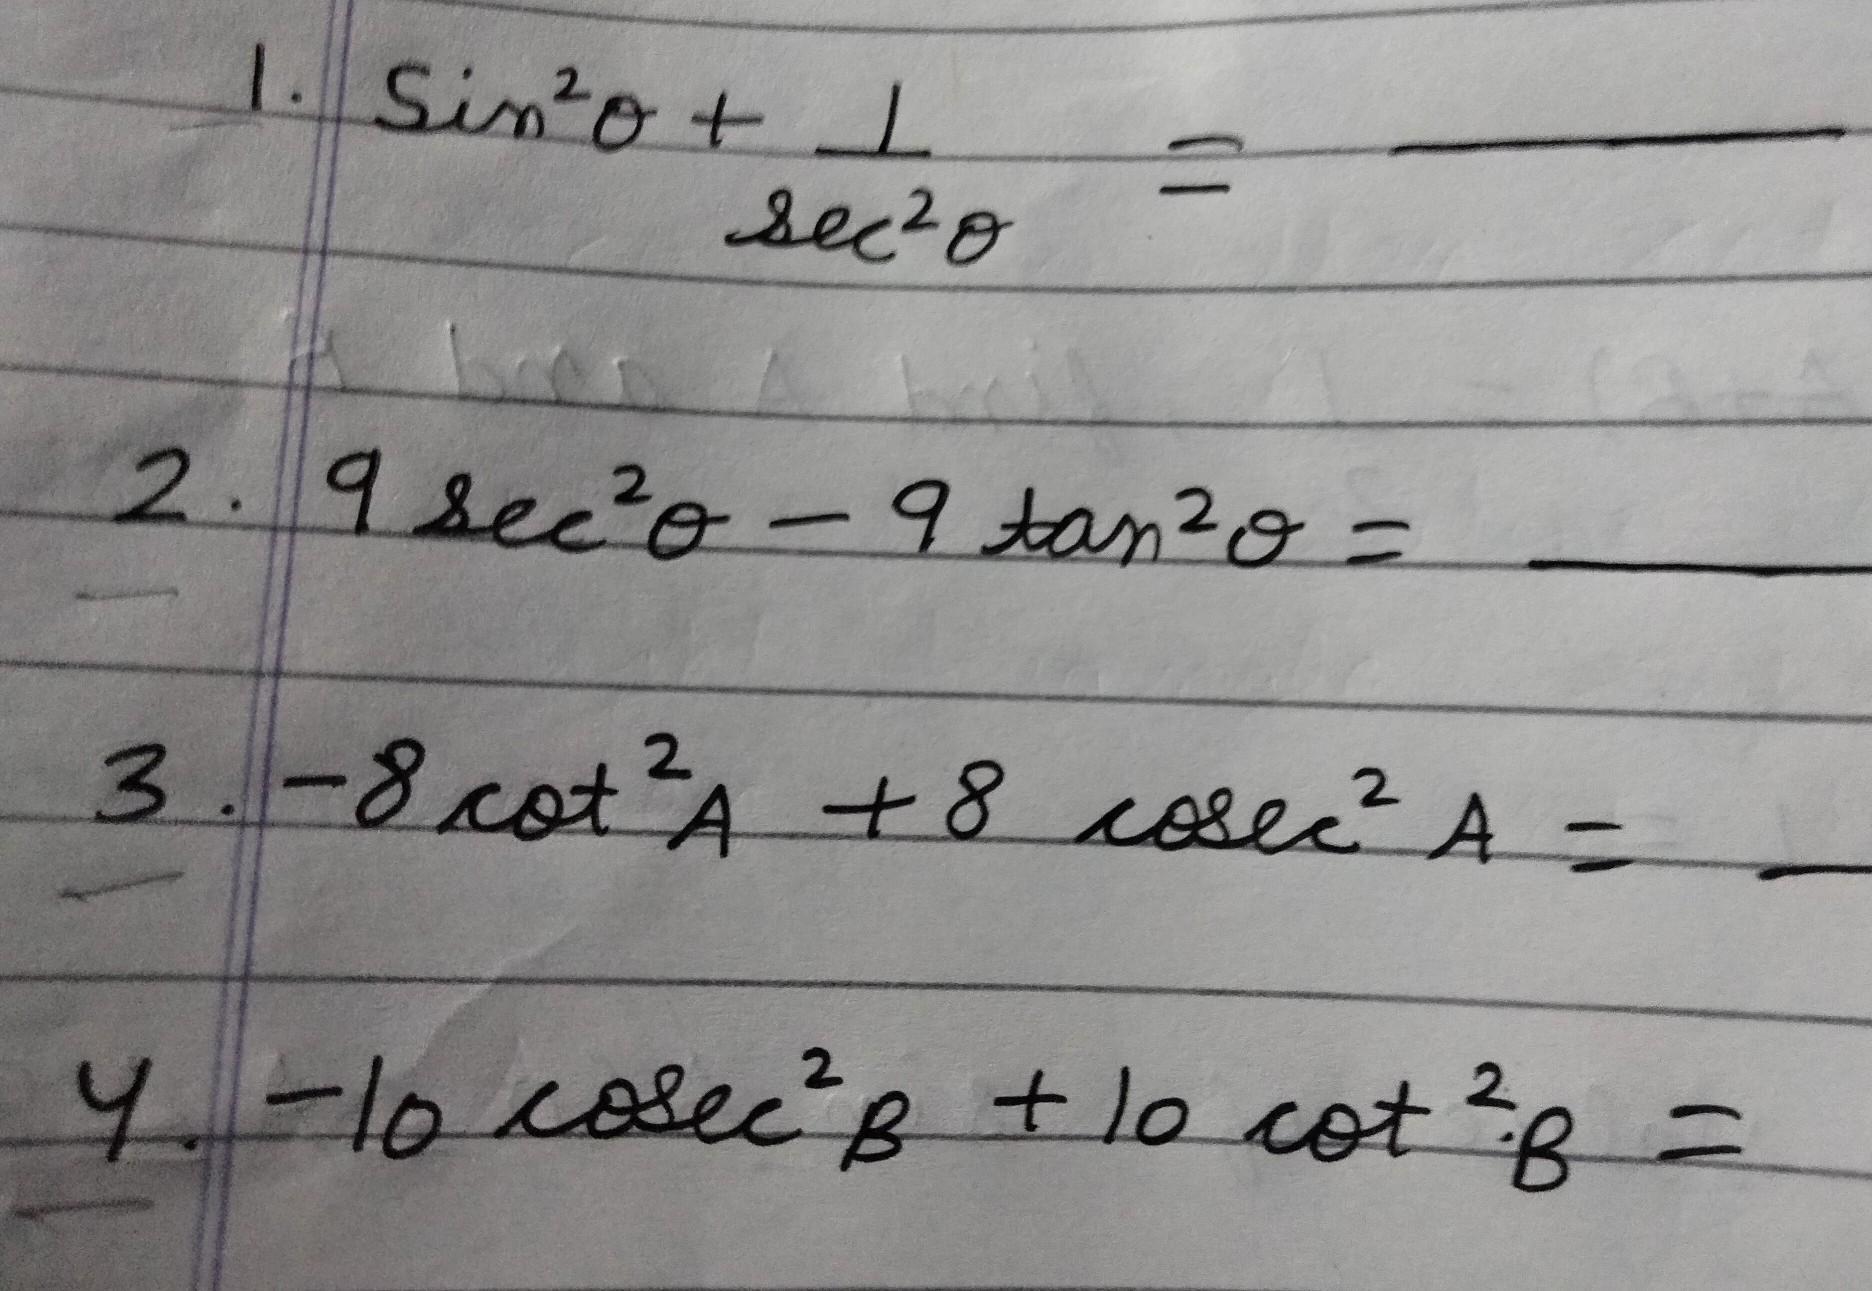 1. Sin²θ + 1/sec²θ = ______
2. 9 sec²θ - 9 tan²θ = ______
3. -8 cot²A + 8 cosec² A = __
4. -10 cosec²B + 10 cot²B =